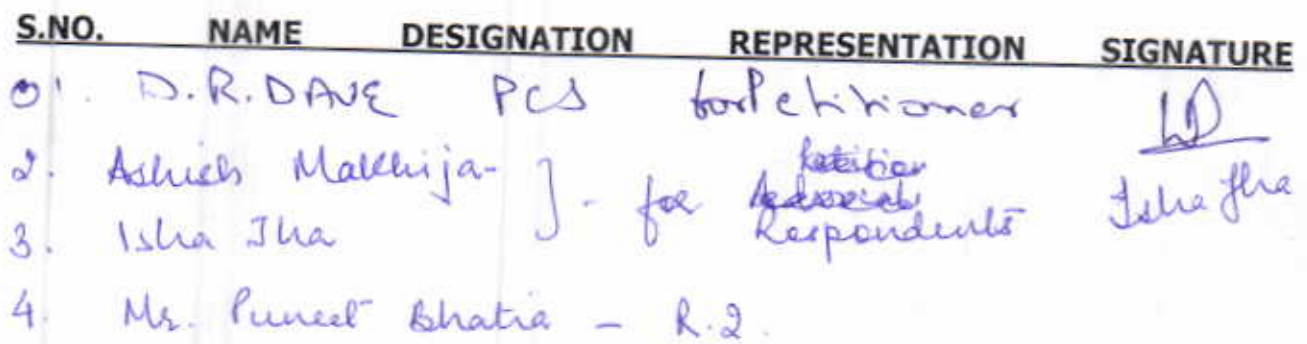 S.NO. NAME DESIGNATION REPRESENTATION SIGNATURE
01. D.R. DAVE PCS for Petitioner
2. Ashish Makhija - } - for
Respondents Isha Jha
3. Isha Jha
4. Mr. Puneet Bhatia - R.2.